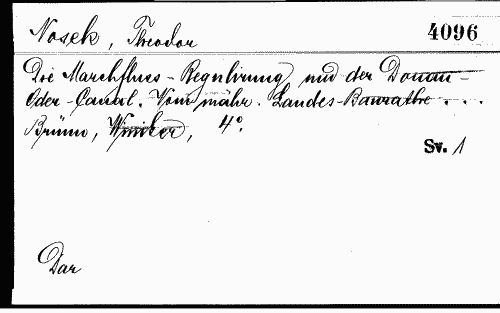 Nosek, Theodor
4096
Die Marchfluss-Regulirung und der Donau-
Oder-Canal. Vom mähr. Landes-Baurathe . . .
Brünn, Winiker, 4°.
Sv. 1
Dar